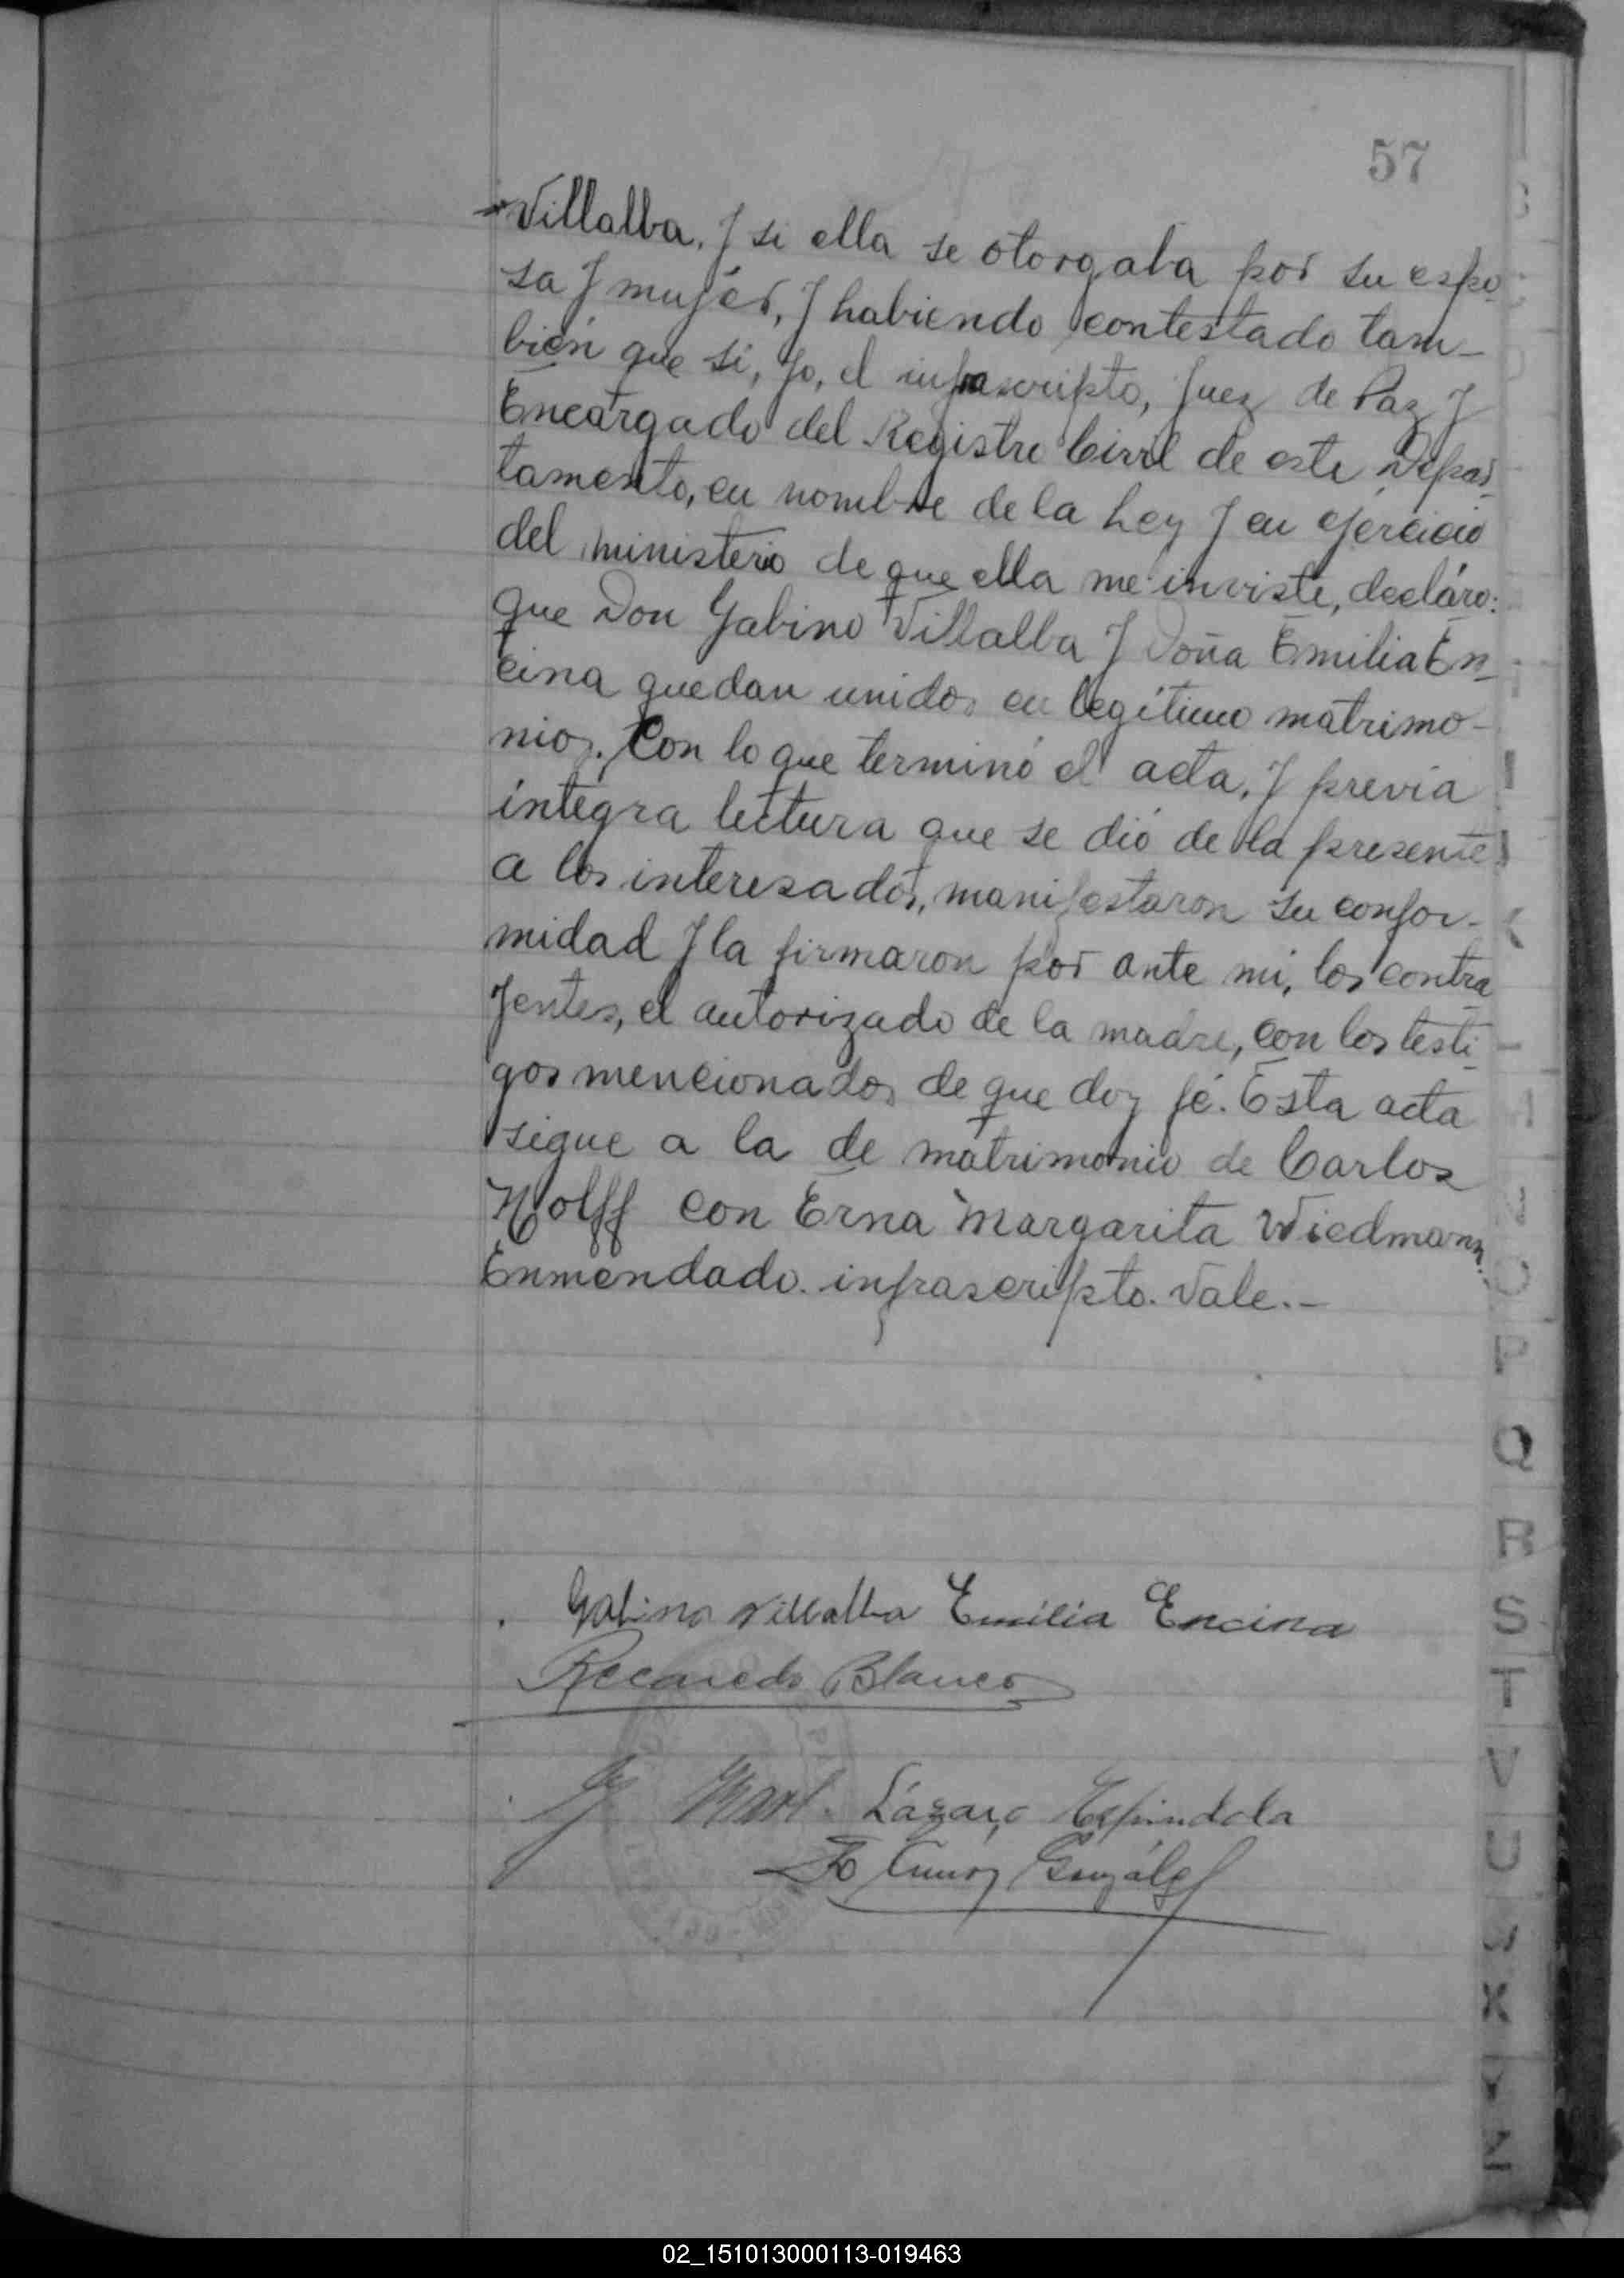 57
Villalba, y si ella se otorgaba por su espo-
sa y mujer, y habiendo contestado tam-
bién que si, yo, el infrascripto, Juez de Paz y
Encargado del Registro Civil de este Depar-
tamento, en nombre de la Ley y en ejercicio
del ministerio de que ella me inviste, decláro:
que Don Gabino Villalba y Doña Emilia En-
cina quedan unidos en legítimo matrimo-
nio. Con lo que terminó el acta, y previa
íntegra lectura que se dió de la presente
a los interesados, manifestaron su confor-
midad y la firmaron por ante mi, los contra
yentes, el autorizado de la madre, con los testi-
gos mencionados de que doy fé. Esta acta
sigue a la de matrimonio de Carlos
Wolff con Erna Margarita Wiedmann.
Enmendado. infrascripto. Vale.-
Gabino Villalba Emilia Encina
Recaredo Blanco
Lázaro Espindola
González
P
Q
R
S
T
V
U
X
Y
Z
02_151013000113-019463